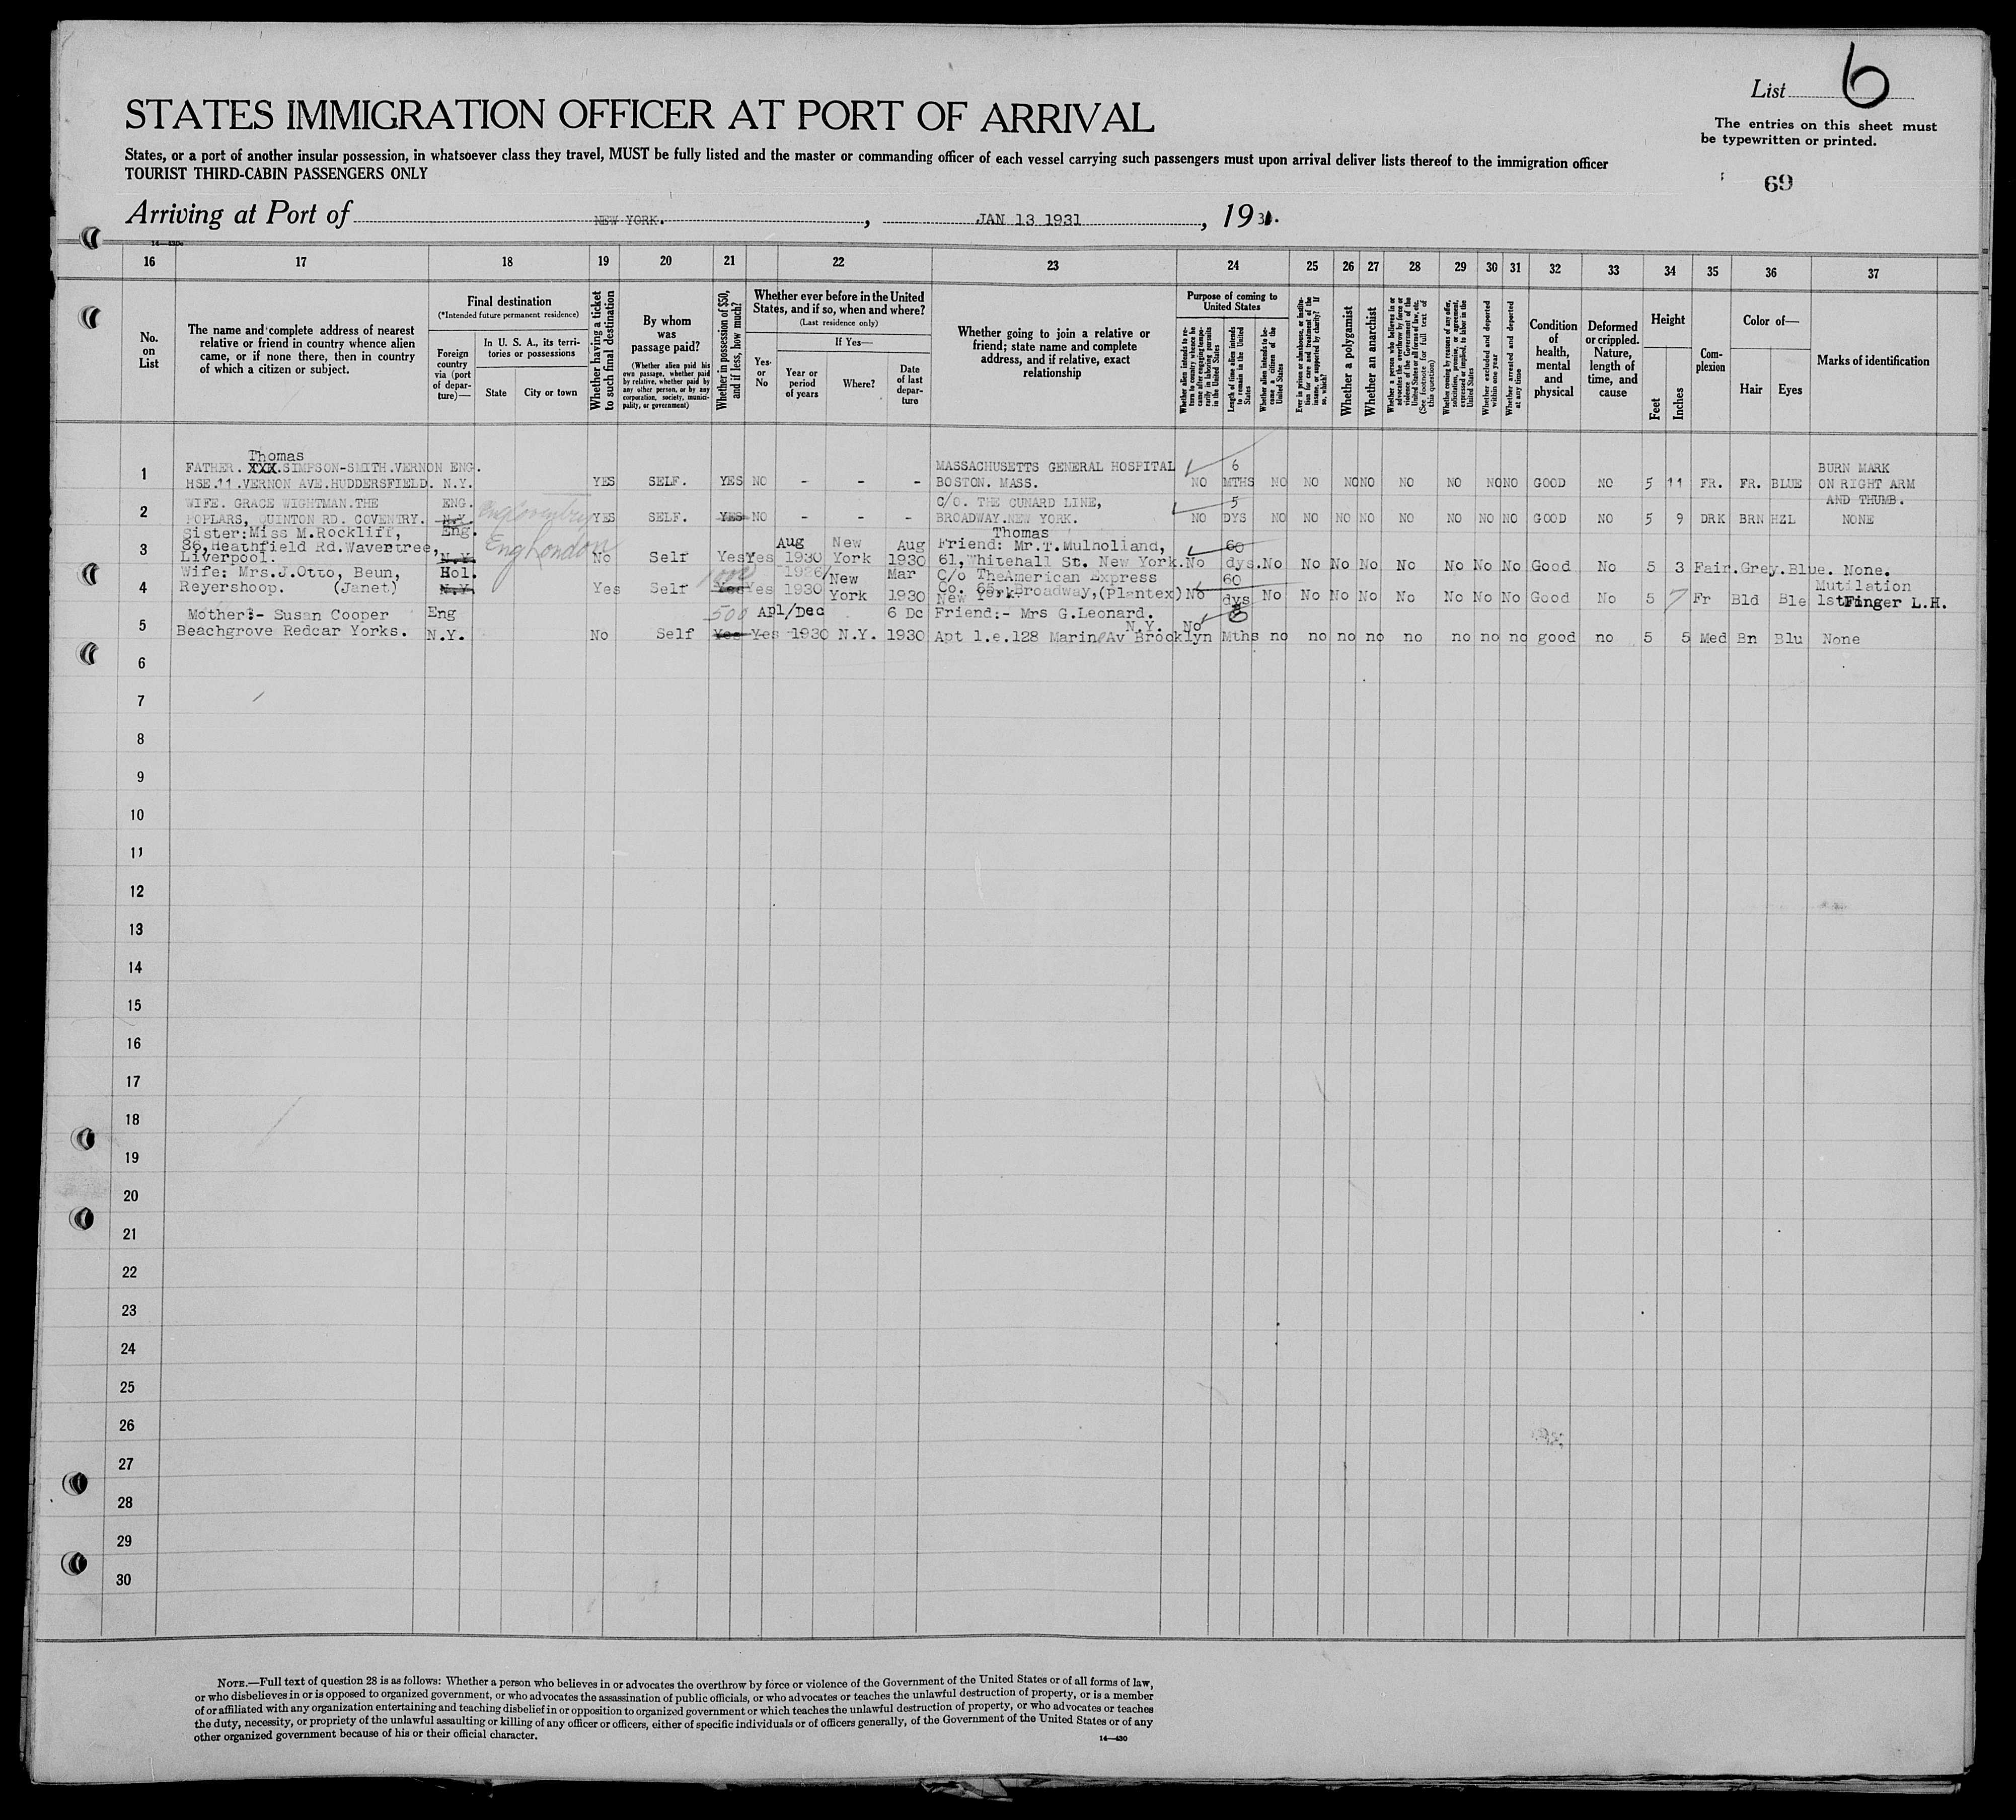 List 6
STATES IMMIGRATION OFFICER AT PORT OF ARRIVAL
The entries on this sheet must
be typewritten or printed.
States, or a port of another insular possession, in whatsoever class they travel, MUST be fully listed and the master or commanding officer of each vessel carrying such passengers must upon arrival deliver lists thereof to the immigration officer
TOURIST THIRD-CABIN PASSENGERS ONLY
69
Arriving at Port of NEW YORK. , JAN 13 1931 , 1931.
14—430
16 17 18 19 20 21 22 23 24 25 26 27 28 29 30 31 32 33 34 35 36 37
No.
on
List
The name and complete address of nearest
relative or friend in country whence alien
came, or if none there, then in country
of which a citizen or subject.
Final destination
(*Intended future permanent residence)
Foreign
country
via (port
of depar-
ture)—
In U. S. A., its terri-
tories or possessions
State
City or town
Whether having a ticket
to such final destination
By whom
was
passage paid?
(Whether alien paid his
own passage, whether paid
by relative, whether paid by
any other person, or by any
corporation, society, munici-
pality, or government)
Whether in possession of $50,
and if less, how much?
Whether ever before in the United
States, and if so, when and where?
(Last residence only)
Yes
or
No
If Yes—
Year or
period
of years
Where?
Date
of last
depar-
ture
Whether going to join a relative or
friend; state name and complete
address, and if relative, exact
relationship
Purpose of coming to
United States
Whether alien intends to re-
turn to country whence he
came after engaging tempo-
rarily in laboring pursuits
in the United States
Length of time alien intends
to remain in the United
States
Whether alien intends to be-
come a citizen of the
United States
Ever in prison or almshouse, or institu-
tion for care and treatment of the
insane, or supported by charity? If
so, which?
Whether a polygamist
Whether an anarchist
Whether a person who believes in or
advocates the overthrow by force or
violence of the Government of the
United States or all forms of law, etc.
(See footnote for full text of
this question)
Whether coming by reason of any offer,
solicitation, promise, or agreement,
expressed or implied, to labor in the
United States
Whether excluded and deported
within one year
Whether arrested and deported
at any time
Condition
of
health,
mental
and
physical
Deformed
or crippled.
Nature,
length of
time, and
cause
Height
Feet
Inches
Com-
plexion
Color of—
Hair
Eyes
Marks of identification
Thomas
1 FATHER. XXX.SIMPSON-SMITH.VERNON ENG. MASSACHUSETTS GENERAL HOSPITAL 6 BURN MARK
HSE.11.VERNON AVE.HUDDERSFIELD. N.Y. YES SELF. YES NO - - - BOSTON. MASS. NO MTHS NO NO NO NO NO NO NO NO GOOD NO 5 11 FR. FR. BLUE ON RIGHT ARM
AND THUMB.
2 WIFE. GRACE WIGHTMAN.THE ENG. C/O. THE CUNARD LINE, 5
POPLARS, QUINTON RD. COVENTRY. N.Y. Eng Coventry YES SELF. YES NO - - - BROADWAY.NEW YORK. NO DYS NO NO NO NO NO NO NO NO GOOD NO 5 9 DRK BRN HZL NONE
3 Sister:Miss M.Rockliff, Eng. Eng London Thomas
86,Heathfield Rd.Wavertree, Aug New Aug Friend: Mr.T.Mulholland, 60
Liverpool. N.Y. No Self Yes Yes 1930 York 1930 61,Whitehall St. New York. No dys. No No No No No No No No Good No 5 3 Fair. Grey. Blue. None.
4 Wife: Mrs.J.Otto, Beun, Hol. 1000 1926/ New Mar C/o The American Express 60 Mutilation
Reyershoop. (Janet) N.Y. Yes Self Yes Yes 1930 York 1930 Co. 65, Broadway,(Plantex) No dys No No No No No No No No Good No 5 7 Fr Bld Ble 1st Finger L.H.
New York.
5 Mother:- Susan Cooper Eng 500 Apl/Dec 6 Dc Friend:- Mrs G.Leonard. No
Beachgrove Redcar Yorks. N.Y. No Self Yes Yes 1930 N.Y. 1930 Apt 1.e.128 Marine Av Brooklyn N.Y. Mths no no no no no no no no good no 5 5 Med Bn Blu None
6
7
8
9
10
11
12
13
14
15
16
17
18
19
20
21
22
23
24
25
26
27
28
29
30
NOTE.—Full text of question 28 is as follows: Whether a person who believes in or advocates the overthrow by force or violence of the Government of the United States or of all forms of law,
or who disbelieves in or is opposed to organized government, or who advocates the assassination of public officials, or who advocates or teaches the unlawful destruction of property, or is a member
of or affiliated with any organization entertaining and teaching disbelief in or opposition to organized government or which teaches the unlawful destruction of property, or who advocates or teaches
the duty, necessity, or propriety of the unlawful assaulting or killing of any officer or officers, either of specific individuals or of officers generally, of the Government of the United States or of any
other organized government because of his or their official character.
14—430